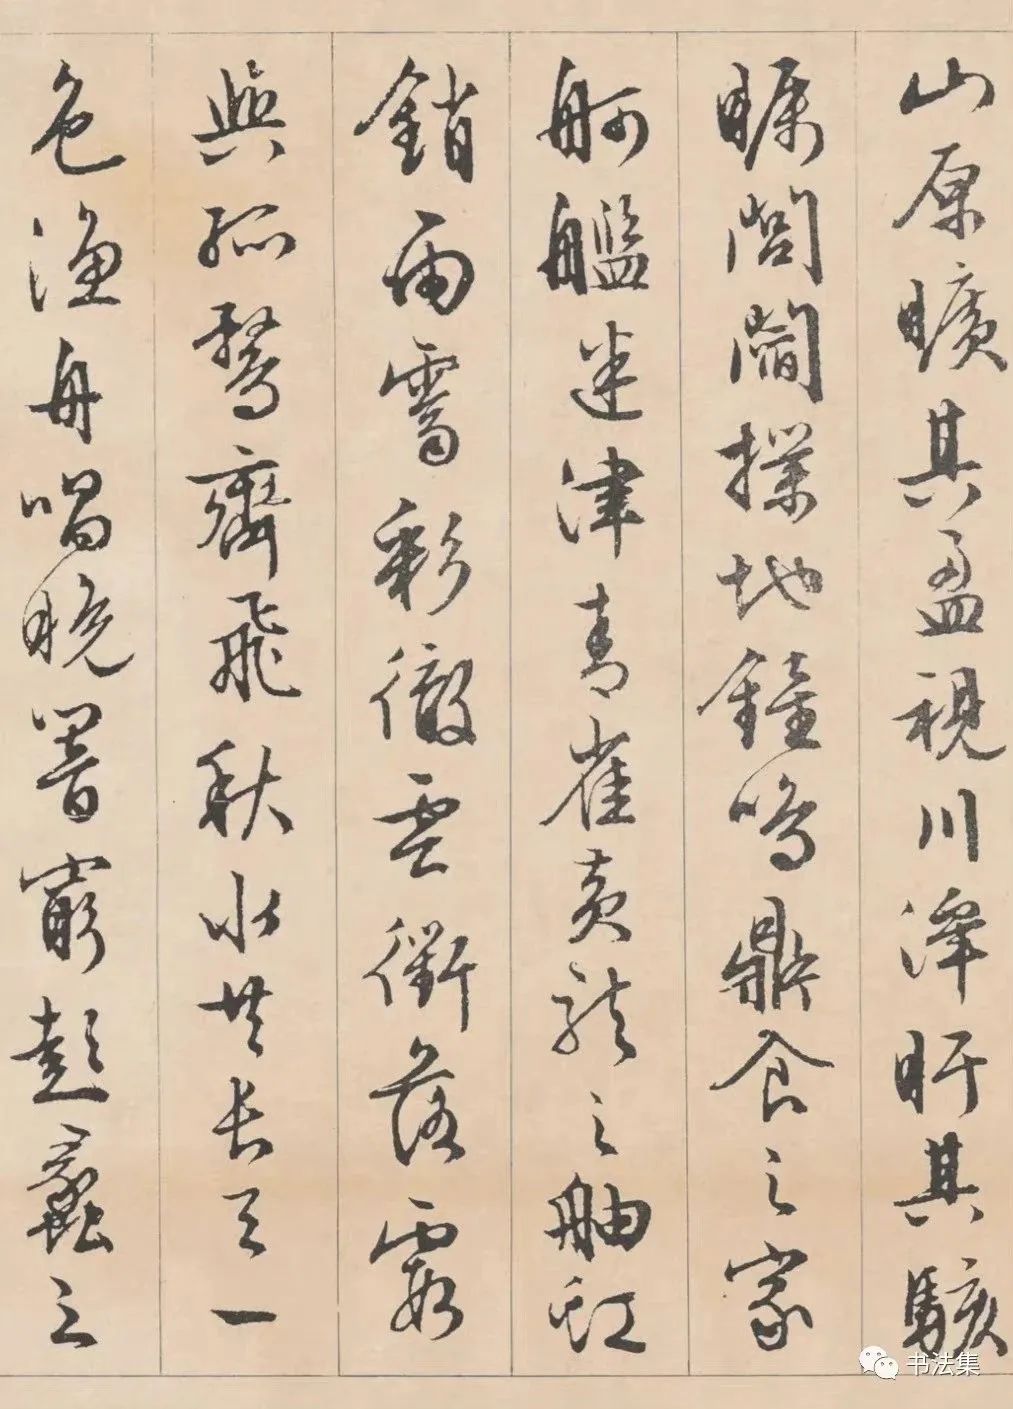 山原曠其盈視川澤盱其駭
矚閭閻撲地鐘鳴鼎食之家
舸艦迷津青雀黄龍之舳虹
銷雨霽彩徹雲衢落霞
與孤鶩齊飛秋水共長天一
色漁舟唱晚響窮彭蠡之
书法集